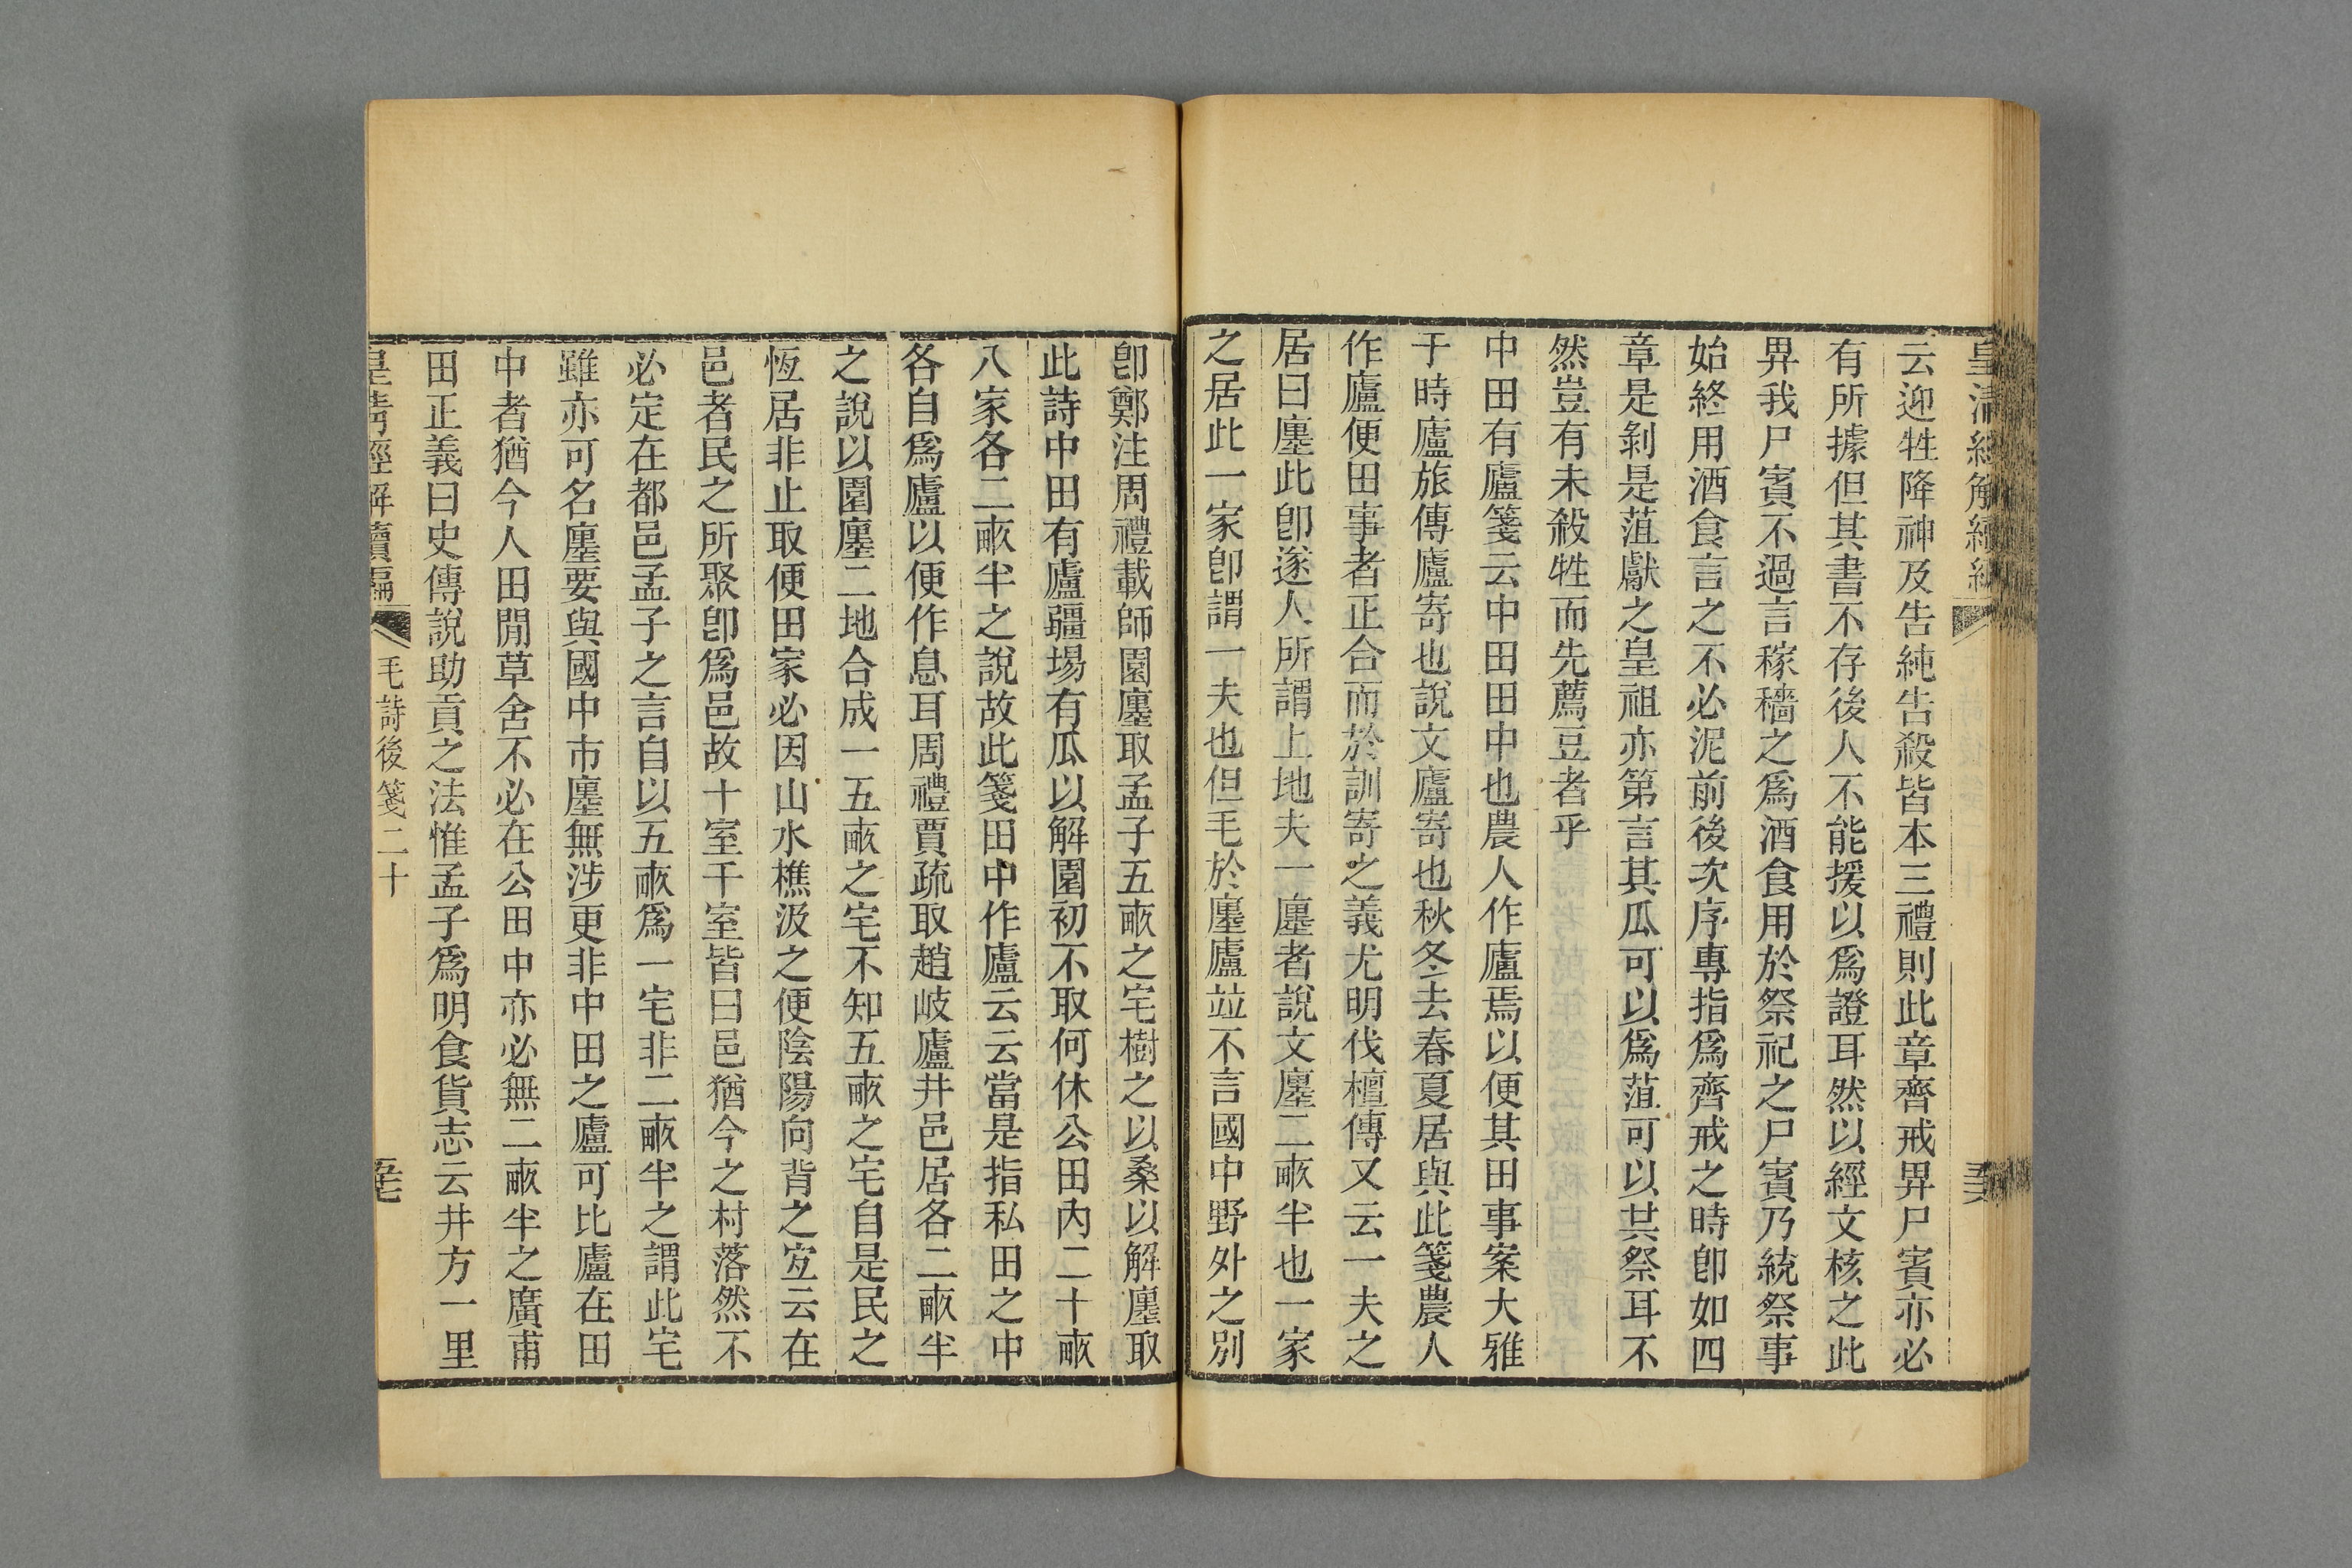 皇清經解續編
云迎牲降神及告純告殺皆本三禮則此章齊戒畀尸賓亦必
有所據但其書不存後人不能援以爲證耳然以經文核之此
畀我尸賓不過言稼穡之爲酒食用於祭祀之尸賓乃統祭事
始終用酒食言之不必泥前後次序專指爲齊戒之時卽如四
章是剝是菹獻之皇祖亦第言其瓜可以爲菹可以其祭耳不
然豈有未殺牲而先薦豆者乎
中田有廬箋云中田田中也農人作廬焉以便其田事案大雅
于時廬旅傳廬寄也說文廬寄也秋冬去春夏居與此箋農人
作廬便田事者正合而於訓寄之義尤明伐檀傳又云一夫之
居曰廛此卽遂人所謂上地夫一廛者說文廛二畝半也一家
之居此一家卽謂一夫也但毛於廛廬竝不言國中野外之別
卽鄭注周禮載師園廛取孟子五畝之宅樹之以桑以解廛取
此詩中田有廬疆場有瓜以解園初不取何休公田內二十畝
八家各二畝半之說故此箋田中作廬云云當是指私田之中
各自爲廬以便作息耳周禮賈疏取趙岐廬井邑居各二畝半
之說以園廛二地合成一五畝之宅不知五畝之宅自是民之
恆居非止取便田家必因山水樵汲之便陰陽向背之宐云在
邑者民之所聚卽爲邑故十室千室皆曰邑猶今之村落然不
必定在都邑孟子之言自以五畝爲一宅非二畝半之謂此宅
雖亦可名廛要與國中市廛無涉更非中田之廬可比廬在田
中者猶今人田閒草舍不必在公田中亦必無二畝半之廣甫
田正義曰史傳說助貢之法惟孟子爲明食貨志云井方一里
皇清經解續編
毛詩後箋二十